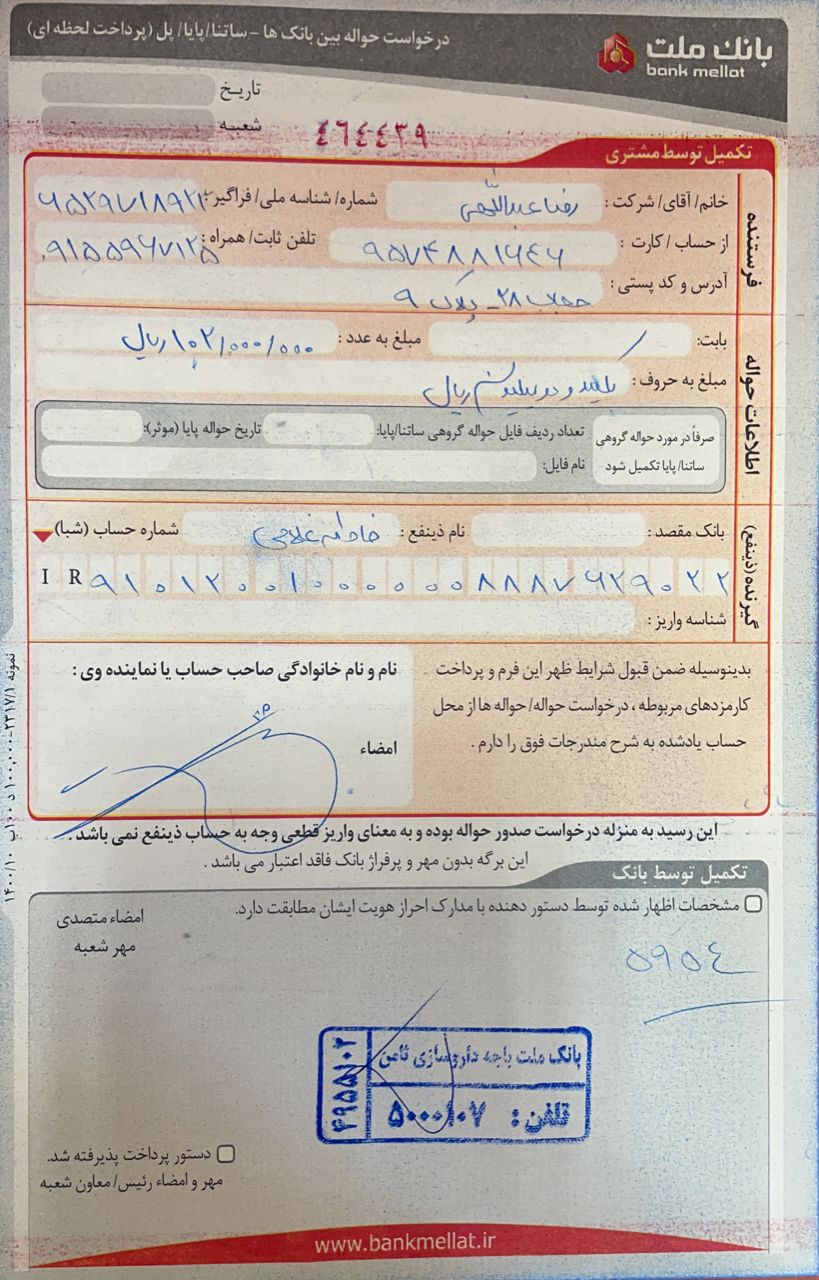 درخواست حواله بین بانک ها - ساتنا/پایا/ پل (پرداخت لحظه ای)
بانک ملت
bank mellat
تاریخ
شعبه
۴۶۴۴۳۹
تکمیل توسط مشتری
فرستنده
خانم/ آقای/ شرکت: رضا عبداللهی شماره/ شناسه ملی/ فراگیر:
از حساب / کارت: ۹۵۷۴۸۸۱۶۴۶ تلفن ثابت/ همراه: ۰۹۱۵۵۹۶۷۱۲۵
آدرس و کد پستی: حجاب ۲۸ - پلاک ۹
اطلاعات حواله
بابت: مبلغ به عدد: ۱۰۲/۰۰۰/۰۰۰ ریال
مبلغ به حروف: یکصد و دو میلیون ریال
صرفاً در مورد حواله گروهی ساتنا/ پایا تکمیل شود
تعداد ردیف فایل حواله گروهی ساتنا/پایا: تاریخ حواله پایا (موثر):
نام فایل:
گیرنده (ذینفع)
بانک مقصد: نام ذینفع: غلامی شماره حساب (شبا)
IR ۹۱۰۱۲۰۰۱۰۰۰۰۰۰۰۸۸۸۷۶۲۹۰۲۲
شناسه واریز:
بدینوسیله ضمن قبول شرایط ظهر این فرم و پرداخت
کارمزدهای مربوطه، درخواست حواله/ حواله ها از محل
حساب یادشده به شرح مندرجات فوق را دارم.
نام و نام خانوادگی صاحب حساب یا نماینده وی:
امضاء
این رسید به منزله درخواست صدور حواله بوده و به معنای واریز قطعی وجه به حساب ذینفع نمی باشد.
این برگه بدون مهر و پرفراژ بانک فاقد اعتبار می باشد.
تکمیل توسط بانک
مشخصات اظهار شده توسط دستور دهنده با مدارک احراز هویت ایشان مطابقت دارد.
امضاء متصدی
مهر شعبه
۵۹۵۴
بانک ملت باجه داروسازی ثامن
تلفن: ۵۰۰۰۱۰۷
۴۹۵۵۱۰۲
دستور پرداخت پذیرفته شد.
مهر و امضاء رئیس/ معاون شعبه
www.bankmellat.ir